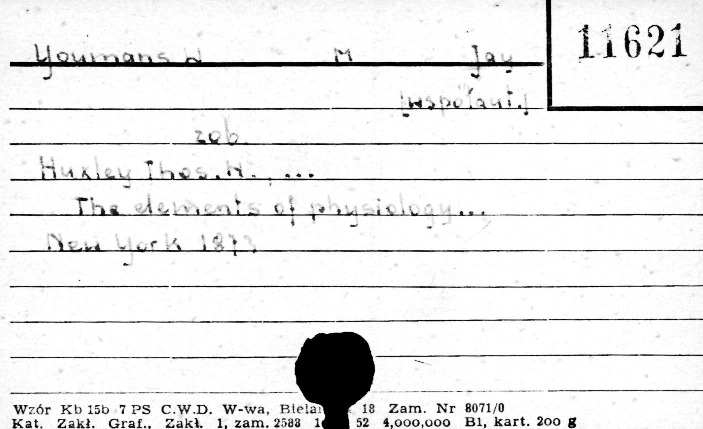 11621
Youmans W M Jay
[współaut.]
zob.
Huxley Thos. H., ...
The elements of physiology...
New York 1873
Wzór Kb 15b 7 PS C.W.D. W-wa, 18 Zam. Nr 8071/0
Kat. Zakł. Graf., Zakł. 1, zam. 2588 52 4,000,000 B1, kart. 200 g